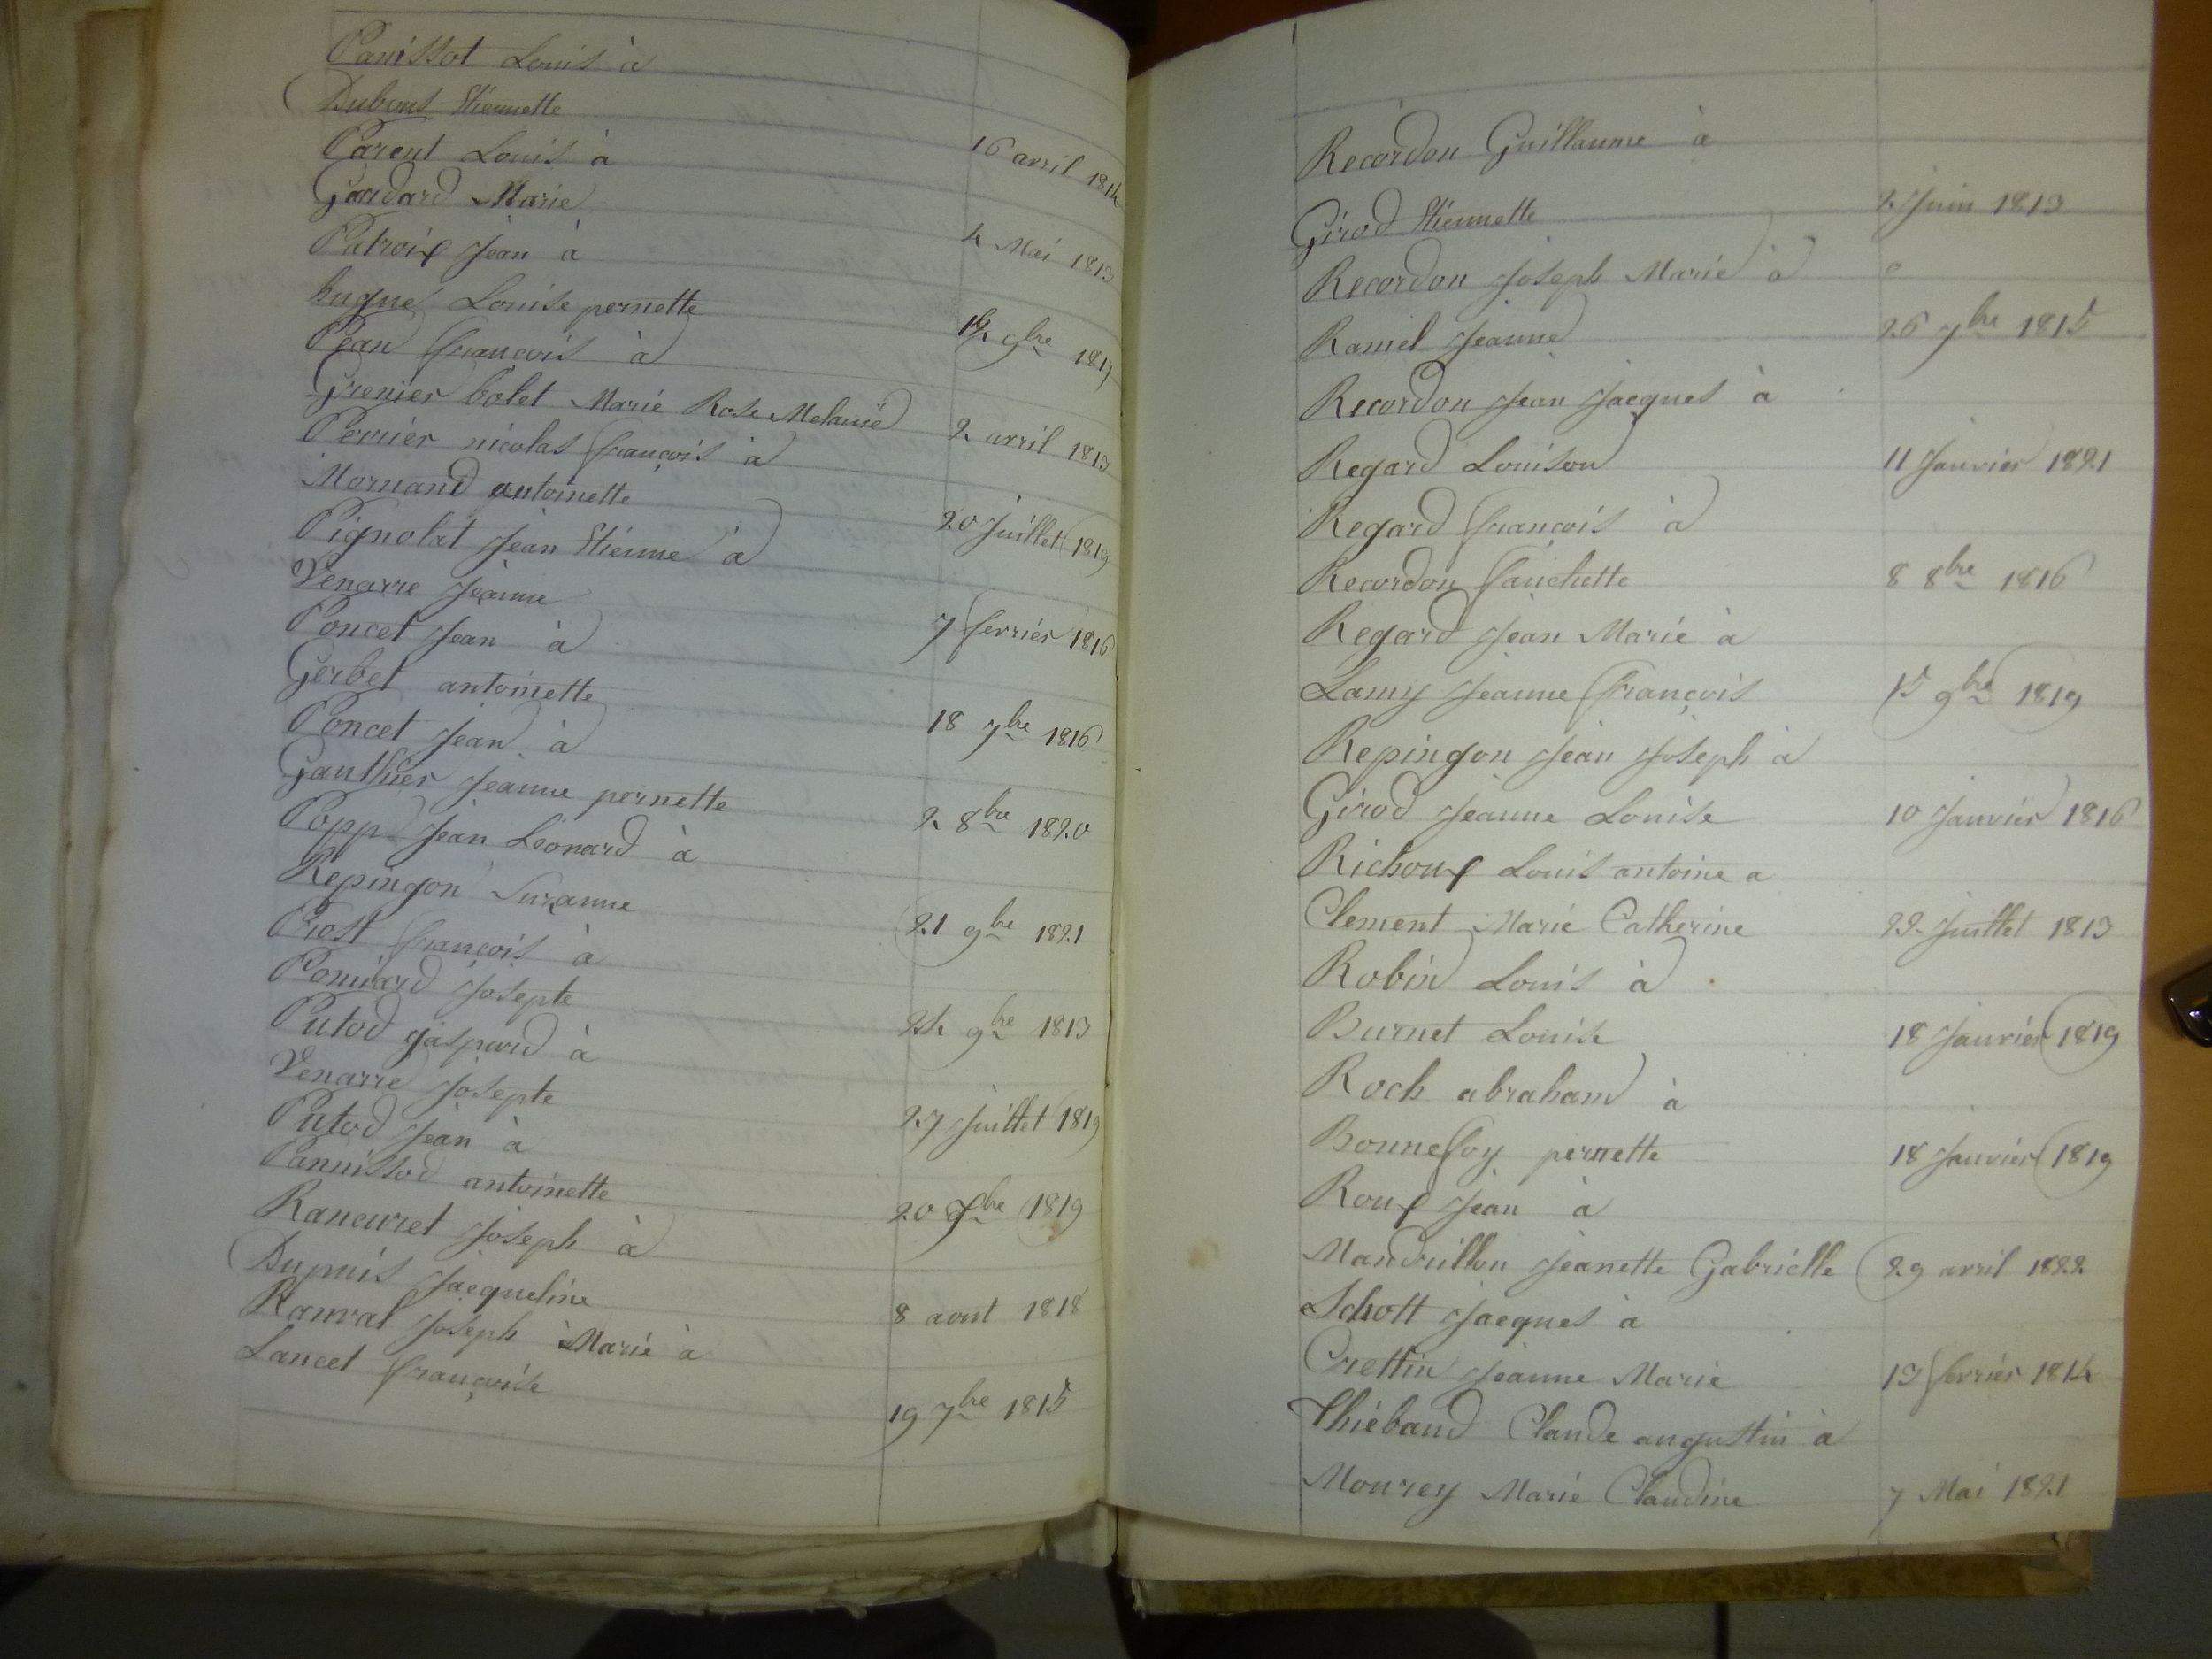 Panissot Louis à
Dubout Etiennette 16 avril 1814
Parent Louis à
Gaudard Marie 4 Mai 1813
Patroix Jean à
hugue Louise pernette 12 9bre 1819
Pean françois à
Grenier bolet Marie Rose Melanie 2 avril 1813
Perrier nicolas françois à
Mornand antoinette 20 Juillet 1819
Pignolat Jean Etienne à
Venarre Jeanne 7 fevrier 1816
Poncet Jean à
Gerbet antoinette 18 7bre 1816
Poncet Jean à
Gauthier Jeanne pernette 2 8bre 1820
Popp Jean Léonard à
Repingon Suzanne 21 9bre 1821
Prost françois à
Pomiard Josepte 24 9bre 1813
Putod gaspard à
Venarre Josepte 27 Juillet 1819
Putod Jean à
Pannissod antoinette 20 7bre 1819
Rancuret Joseph à
Dupuis Jacqueline 8 aout 1818
Ranvat Joseph Marie à
Lancet françoise 19 7bre 1815
Recordon Guillaume à
Girod Etiennette 2 Juin 1813
Recordon Joseph Marie à
Ramel Jeanne 26 7bre 1815
Recordon Jean Jacques à
Regard Louison 11 Janvier 1821
Regard françois à
Recordon fanchette 8 8bre 1816
Regard Jean Marie à
Lamy Jeanne françois 15 9bre 1819
Repingon Jean Joseph à
Girod Jeanne Louise 10 Janvier 1816
Richoux Louis antoine a
Clement Marie Catherine 22 Juillet 1813
Robin Louis à
Burnet Louise 18 Janvier 1819
Roch abraham à
Bonnefoy pernette 18 Janvier 1819
Roux Jean à
Mandrillon Jeanette Gabrielle 29 avril 1822
Schott Jacques à
Crettin Jeanne Marie 13 fevrier 1814
Thiébaud Claude augustin à
Mourey Marie Claudine 7 Mai 1821